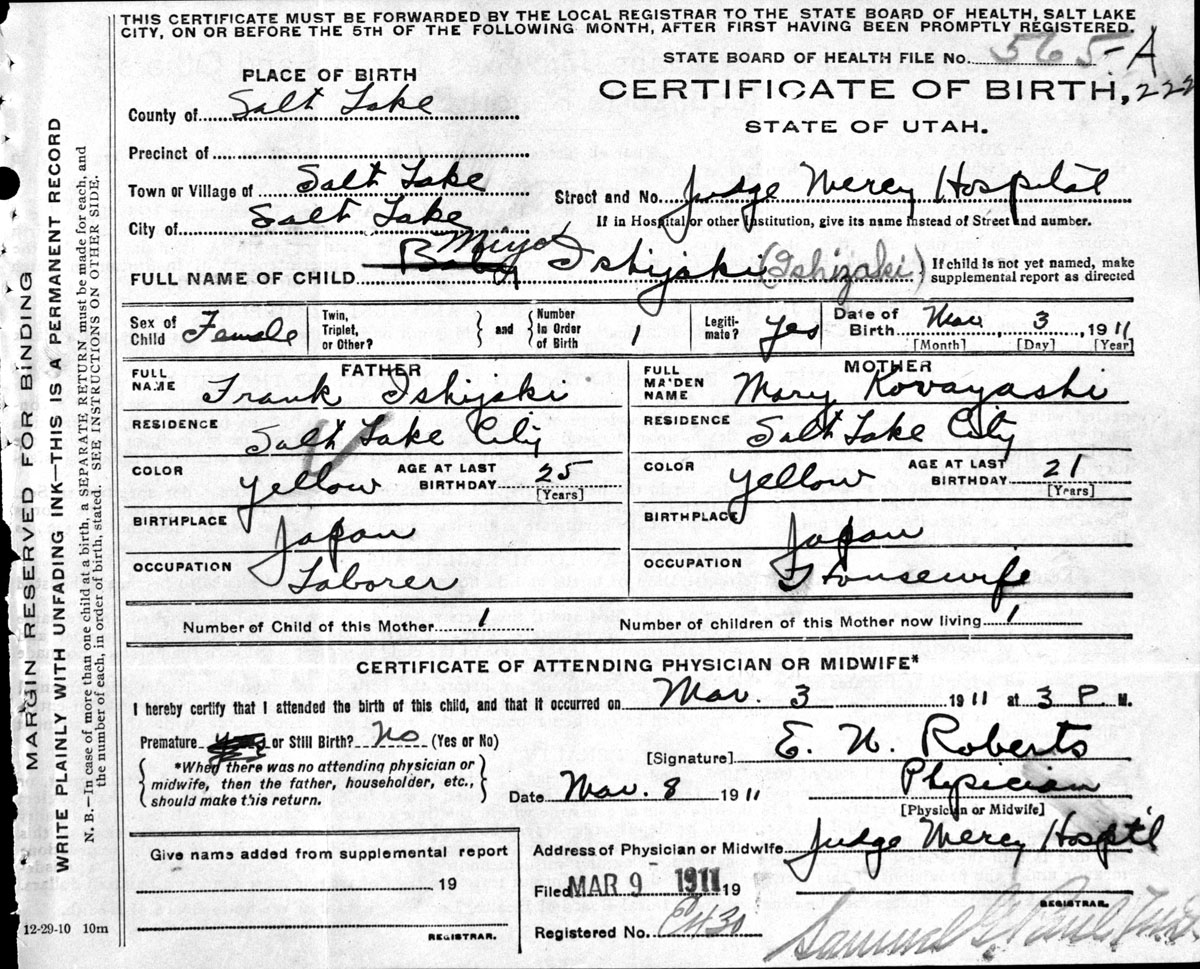 THIS CERTIFICATE MUST BE FORWARDED BY THE LOCAL REGISTRAR TO THE STATE BOARD OF HEALTH, SALT LAKE
CITY, ON OR BEFORE THE 5TH OF THE FOLLOWING MONTH, AFTER FIRST HAVING BEEN PROMPTLY REGISTERED.
STATE BOARD OF HEALTH FILE No. 565-A
222
PLACE OF BIRTH
CERTIFICATE OF BIRTH,
STATE OF UTAH.
County of Salt Lake
Precinct of
Town or Village of Salt Lake
Street and No. Judge Mercy Hospital
City of Salt Lake
If in Hospital or other Institution, give its name instead of Street and number.
FULL NAME OF CHILD Baby Miyo Ishijaki (Ishizaki)
If child is not yet named, make
supplemental report as directed
Sex of Child Female
Twin, Triplet, or Other?
and
Number in Order of Birth 1
Legiti-mate? Yes
Date of Birth Mar 3 1911
[Month] [Day] [Year]
FATHER
FULL NAME Frank Ishijaki
RESIDENCE Salt Lake City
COLOR yellow
AGE AT LAST BIRTHDAY 25
[Years]
BIRTHPLACE Japan
OCCUPATION Laborer
MOTHER
FULL MAIDEN NAME Mary Kovayashi
RESIDENCE Salt Lake City
COLOR yellow
AGE AT LAST BIRTHDAY 21
[Years]
BIRTHPLACE Japan
OCCUPATION Housewife
Number of Child of this Mother 1
Number of children of this Mother now living 1
CERTIFICATE OF ATTENDING PHYSICIAN OR MIDWIFE*
I hereby certify that I attended the birth of this child, and that it occurred on Mar. 3 1911 at 3 P. M.
Premature or Still Birth? No (Yes or No)
*When there was no attending physician or
midwife, then the father, householder, etc.,
should make this return.
[Signature] E. W. Roberts
Physician
[Physician or Midwife]
Date Mar. 8 1911
Address of Physician or Midwife Judge Mercy Hosptl
Give name added from supplemental report
19
REGISTRAR.
Filed MAR 9 1911 19
REGISTRAR.
Registered No.
12-29-10 10m
MARGIN RESERVED FOR BINDING
WRITE PLAINLY WITH UNFADING INK—THIS IS A PERMANENT RECORD
N. B.—In case of more than one child at a birth, a SEPARATE RETURN must be made for each, and
the number of each, in order of birth, stated. SEE INSTRUCTIONS ON OTHER SIDE.